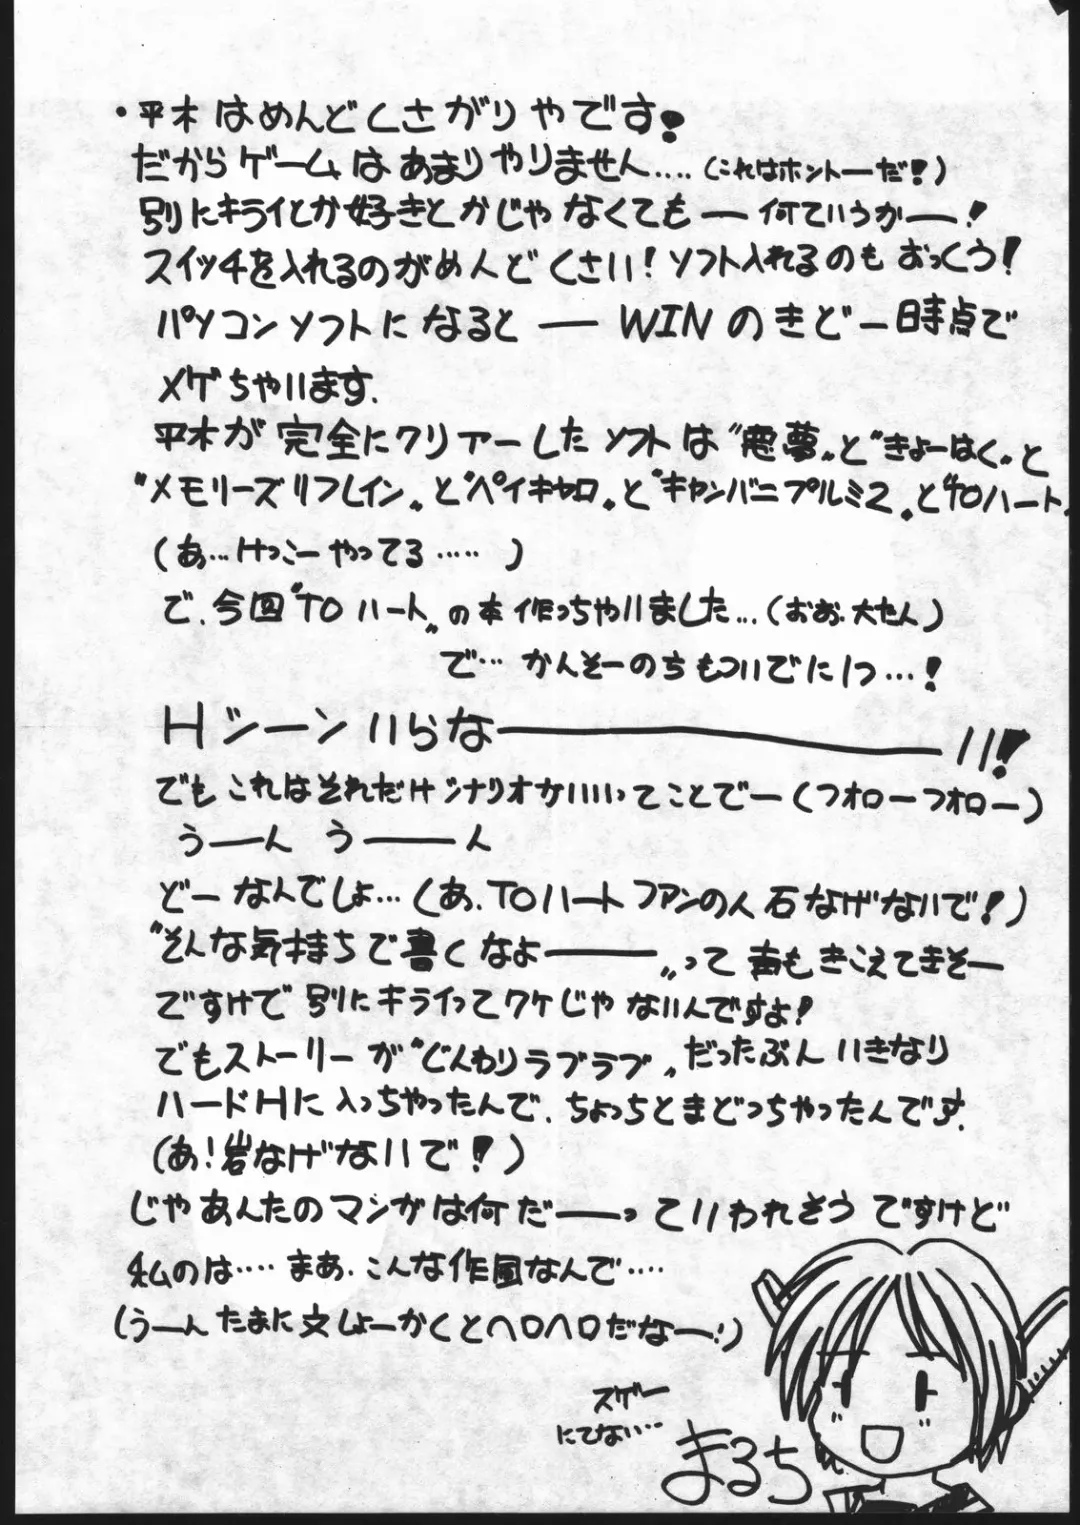 ・平木はめんどくさがりやです!
だからゲームはあまりやりません….(これはホントーだ!)
別にキライとか好きとかじゃなくてもー何ていうかー!
スイッチを入れるのがめんどくさい!ソフト入れるのもおっくう!
パソコンソフトになると ― WINのきどー時点で
メゲちゃいます.
平木が完全にクリアーしたソフトは"悪夢"と"きょーはく"と
"メモリーズリフレイン"と"ペイキャロ"と"キャンバニプルミ2"とTOハート.
(あ…けっこーやってる……)
で、今回"TOハート"の本作っちゃいました…(おお、大たん)
で… かんそーのちもついでに1つ…!
Hシーンいらなーーーい!
でもこれはそれだけシナリオがいいってことでー(フォローフォロー)
うーん うーーん
どーなんでしょ…(あ、TOハートファンの人石なげないで!)
"そんな気持ちで書くなよーーー"って声もきこえてきそー
ですけで別にキライってワケじゃないんですよ!
でもストーリーが"じんわりラブラブ"だったぶんいきなり
ハードHに入っちゃったんで、ちょっちとまどっちゃったんです.
(あ!岩なげないで!)
じゃあんたのマンガは何だーーっていわれそうですけど
私のは…. まあ、こんな作風なんで….
(うーんたまに文しょーかくとヘロヘロだなー!)
スゲー
にてない…
まるち